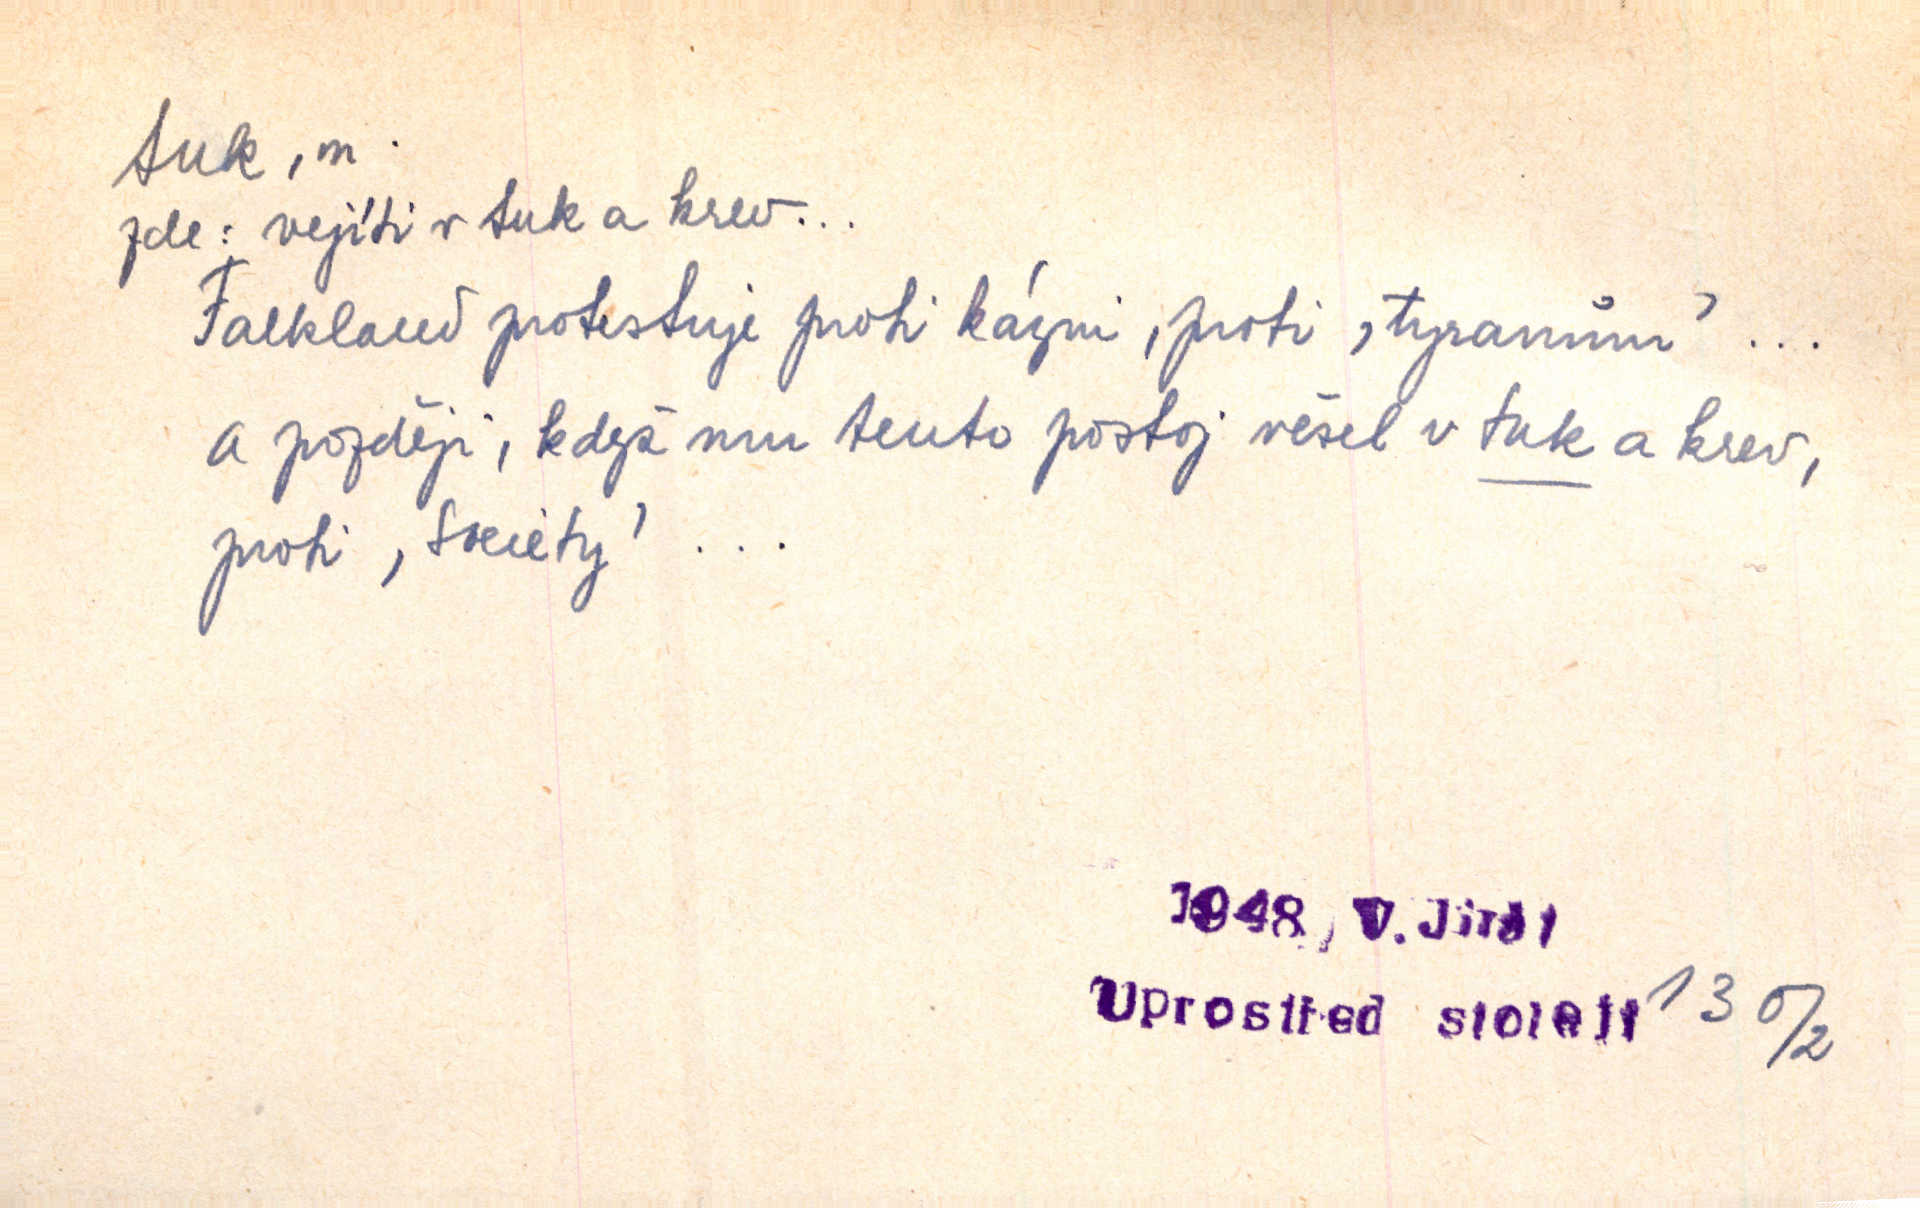 tuk, m.
zde: vejíti v tuk a krev...
Falkland protestuje proti kázni, proti ‚tyranům’ ...
a později, když mu tento postoj věšel v tuk a krev,
proti ‚Society’ ...
1948, V. Jirát
Uprostřed století 130/2